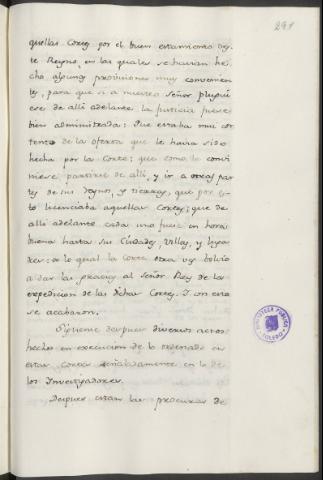 291
quellas Cortes por el buen estamiento des-
te Reyno, en las quales se havian he-
cho algunas provisiones muy convenien-
tes, para que si a nuestro Señor pluguie-
se de alli adelante la justicia fuese
bien administrada: Que estaba mui con-
tento de la oferta que le havia sido
hecha por la Corte: que como le convi-
niese partirse de alli, y ir a otras par-
tes de sus Reynos, y tierras, que por es-
to licenciaba aquellas Cortes; que de
alli adelante cada uno fuese en hora
buena hasta sus Ciudades, Villas, y luga-
res: de lo qual la Corte otra vez bolvio
a dar las gracias al Señor Rey de la
expedicion de las dichas Cortes. I con esto
se acabaron.
Siguense despues diversos actos
hechos en execucion de lo ordenado en
estas Cortes señaladamente en lo de
los Investigadores.
Despues estan las procuras de
BIBLIOTECA PUBLICA
TOLEDO